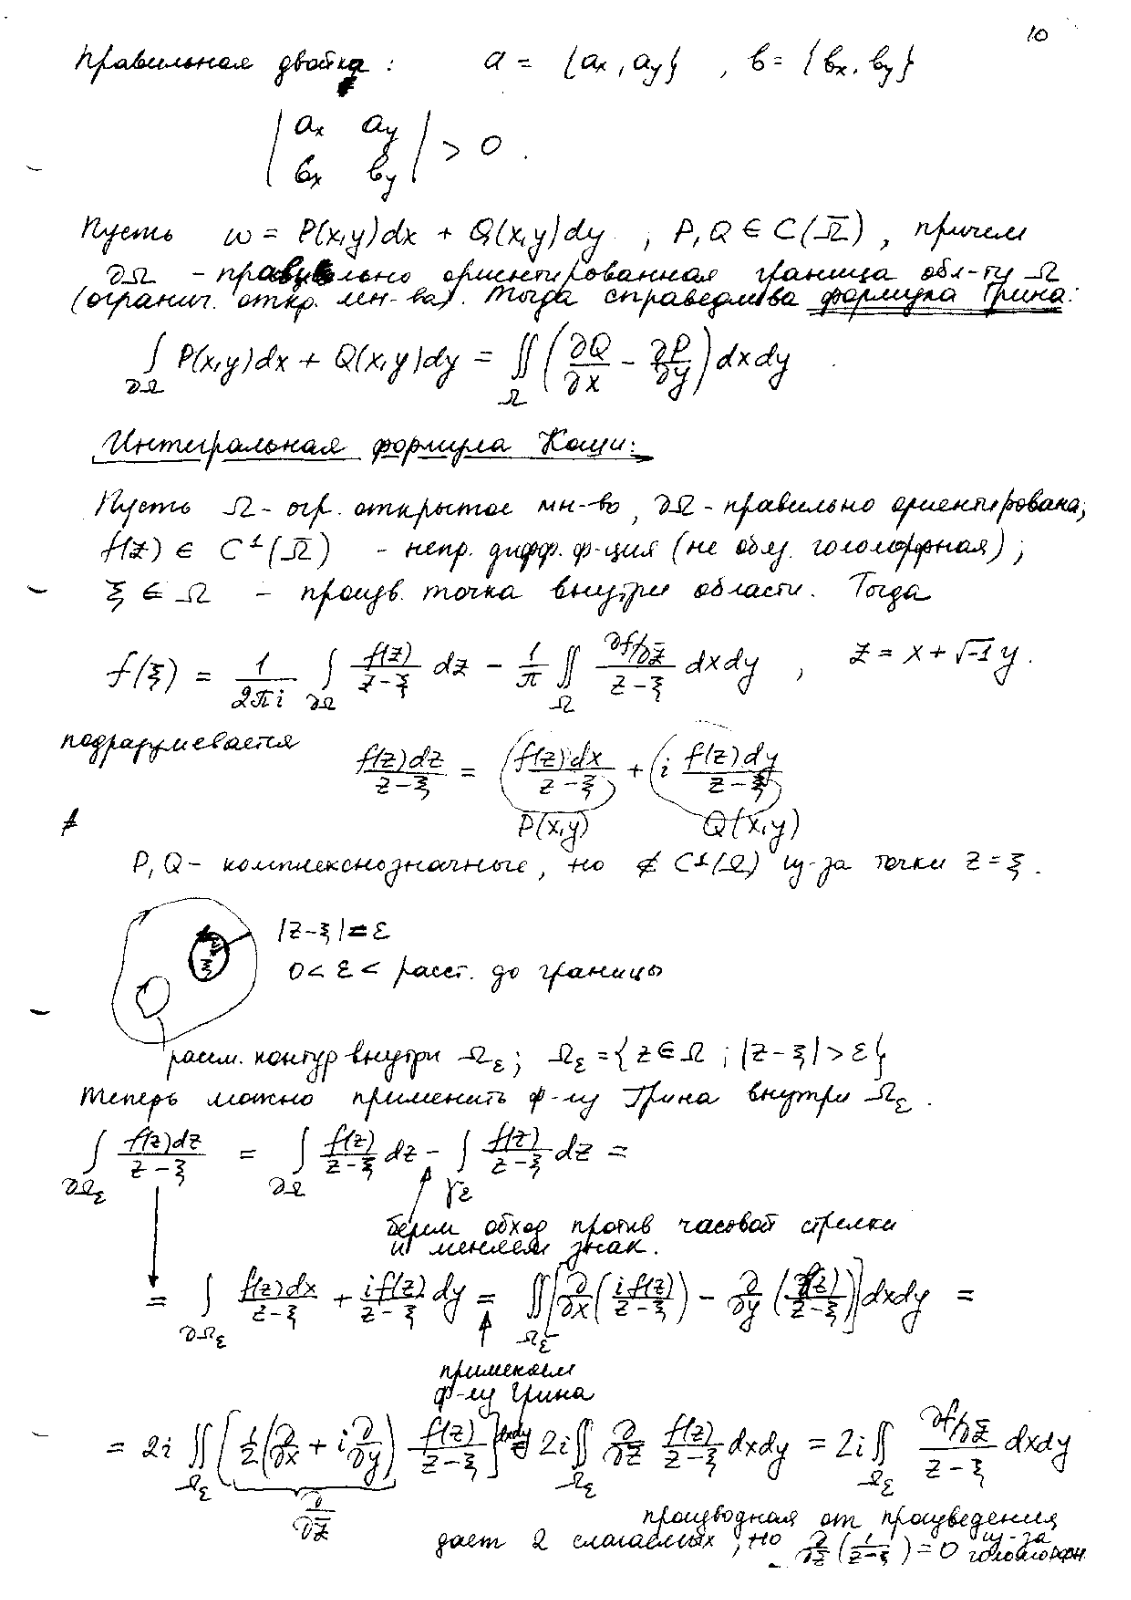 10
Правильная двойка : a = {aₓ, a_y} , в = {вₓ, в_y}
| aₓ a_y |
| вₓ в_y | > 0 .
Пусть ω = P(x,y)dx + Q(x,y)dy , P, Q ∈ C(Ω̄) , причем
∂Ω - правильно ориентированная граница обл-ти Ω
(огранич. откр. мн-ва). Тогда справедлива формула Грина:
∫_{∂Ω} P(x,y)dx + Q(x,y)dy = ∬_Ω (∂Q/∂x - ∂P/∂y) dxdy .
Интегральная формула Коши:
Пусть Ω - огр. открытое мн-во, ∂Ω - правильно ориентирована;
f(z) ∈ C¹(Ω̄) - непр. дифф. ф-ция (не обяз. голоморфная) ;
ξ ∈ Ω - произв. точка внутри области. Тогда
f(ξ) = 1/(2πi) ∫_{∂Ω} f(z)/(z-ξ) dz - 1/π ∬_Ω (∂f/∂z̄)/(z-ξ) dxdy , z = x + √-1 y .
подразумевается f(z)dz/(z-ξ) = f(z)dx/(z-ξ) + i f(z)dy/(z-ξ)
P(x,y) Q(x,y)
P, Q - комплекснозначные, но ∉ C¹(Ω) из-за точки z = ξ .
|z-ξ| = ε
ξ
0 < ε < расст. до границы
рассм. контур внутри Ω_ε ; Ω_ε = { z ∈ Ω ; |z-ξ| > ε }
Теперь можно применить ф-лу Грина внутри Ω_ε .
∫_{∂Ω_ε} f(z)dz/(z-ξ) = ∫_{∂Ω} f(z)/(z-ξ) dz - ∫_{γ_ε} f(z)/(z-ξ) dz =
берем обход против часовой стрелки
и меняем знак.
= ∫_{∂Ω_ε} f(z)dx/(z-ξ) + i f(z)/(z-ξ) dy = ∬_{Ω_ε} [∂/∂x (i f(z)/(z-ξ)) - ∂/∂y (f(z)/(z-ξ))] dxdy =
применяем
ф-лу Грина
= 2i ∬_{Ω_ε} [1/2 (∂/∂x + i ∂/∂y) f(z)/(z-ξ)] dxdy = 2i ∬_{Ω_ε} ∂/∂z̄ f(z)/(z-ξ) dxdy = 2i ∬_{Ω_ε} (∂f/∂z̄)/(z-ξ) dxdy
∂/∂z̄
производная от произведения
дает 2 слагаемых, но ∂/∂z̄ (1/(z-ξ)) = 0 из-за
голоморфн.